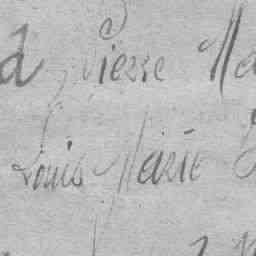 d Pierre Ma
Louis Marie